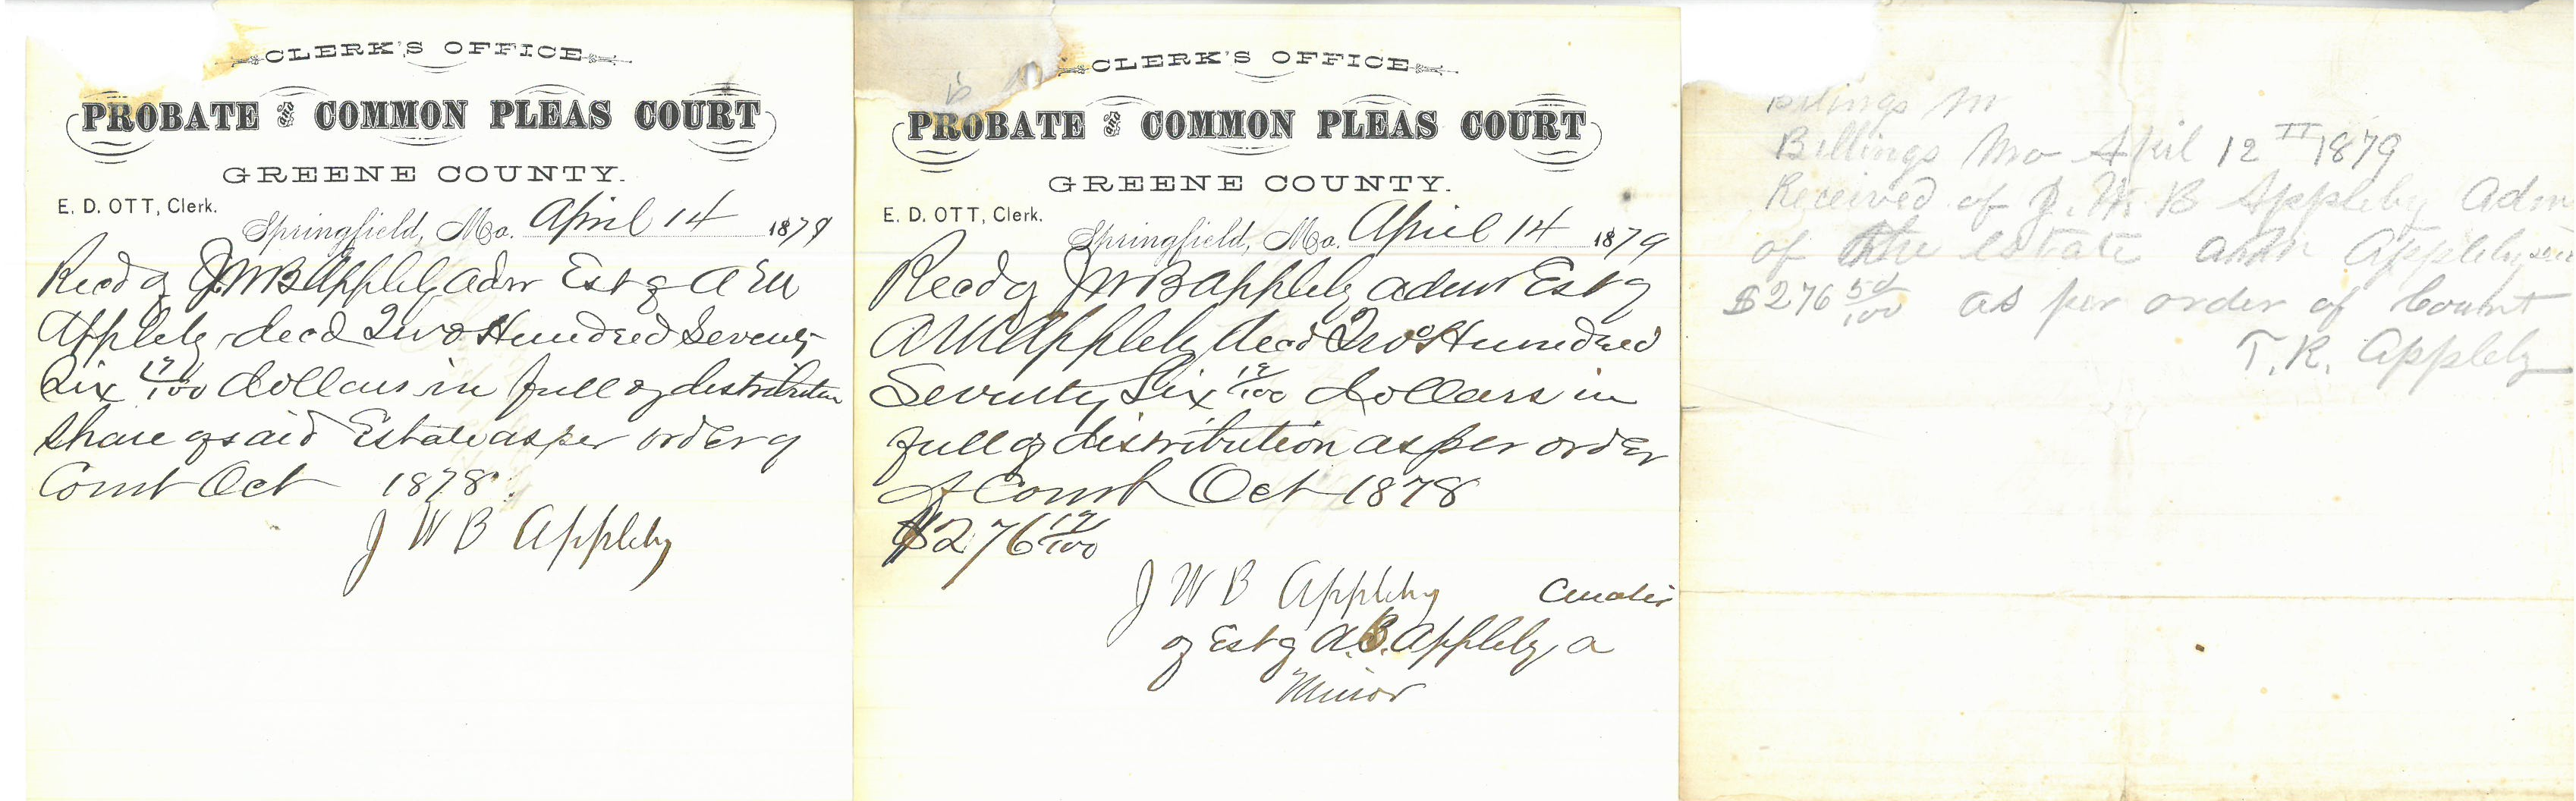 CLERK'S OFFICE
PROBATE & COMMON PLEAS COURT
GREENE COUNTY.
E. D. OTT, Clerk.
Springfield, Mo. April 14 1879
Recd of J.W.B Appleby adm Est of A M
Appleby decd Two Hundred Seventy
Six 19/100 dollars in full of distribution
share of said Estate as per order of
Court Oct 1878.
J W B Appleby
CLERK'S OFFICE
PROBATE & COMMON PLEAS COURT
GREENE COUNTY.
E. D. OTT, Clerk.
Springfield, Mo. April 14 1879
Recd of J W B Appleby admr Est of
A M Appleby decd Two Hundred
Seventy Six 19/100 dollars in
full of distribution as per order
of Court Oct 1878
$276 19/100
J W B Appleby Curator
of Est of A.B. Appleby, a
Minor
Billings M
Billings Mo April 12 1879
Received of J. W. B Appleby Adm
of the estate Appleby
$276 50/100 as per order of Court
T. R. Appleby